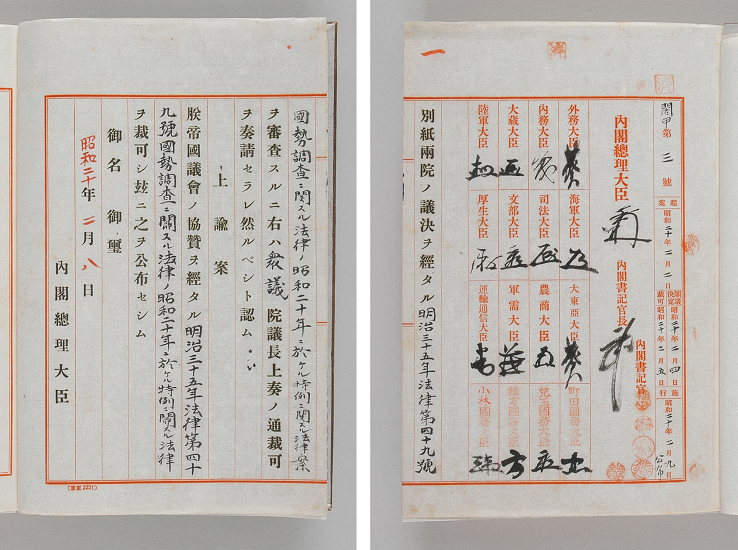 閣甲第三號
起案 昭和二十年二月二日
閣議決定 昭和二十年二月四日
裁可 昭和二十年二月五日
施行 昭和二十年二月九日 公布
內閣總理大臣
內閣書記官長
內閣書記官
外務大臣 海軍大臣 大東亞大臣 町田國務大臣
內務大臣 司法大臣 農商大臣 兒玉國務大臣
大藏大臣 文部大臣 軍需大臣 緒方國務大臣
陸軍大臣 厚生大臣 運輸通信大臣 小林國務大臣
別紙兩院ノ議決ヲ經タル明治三十五年法律第四十九號
一
國勢調査ニ關スル法律ノ昭和二十年ニ於ケル特例ニ關スル法律案
ヲ審査スルニ右ハ衆議院議長上奏ノ通裁可
ヲ奏請セラレ然ルベシト認ム
上諭案
朕帝國議會ノ協贊ヲ經タル明治三十五年法律第四十
九號國勢調査ニ關スル法律ノ昭和二十年ニ於ケル特例ニ關スル法律
ヲ裁可シ玆ニ之ヲ公布セシム
御名御璽
昭和二十年二月八日
內閣總理大臣